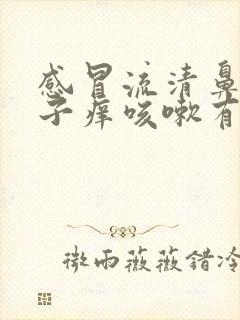 感冒流清鼻
子痒咳嗽有
微雨薇薇错冷